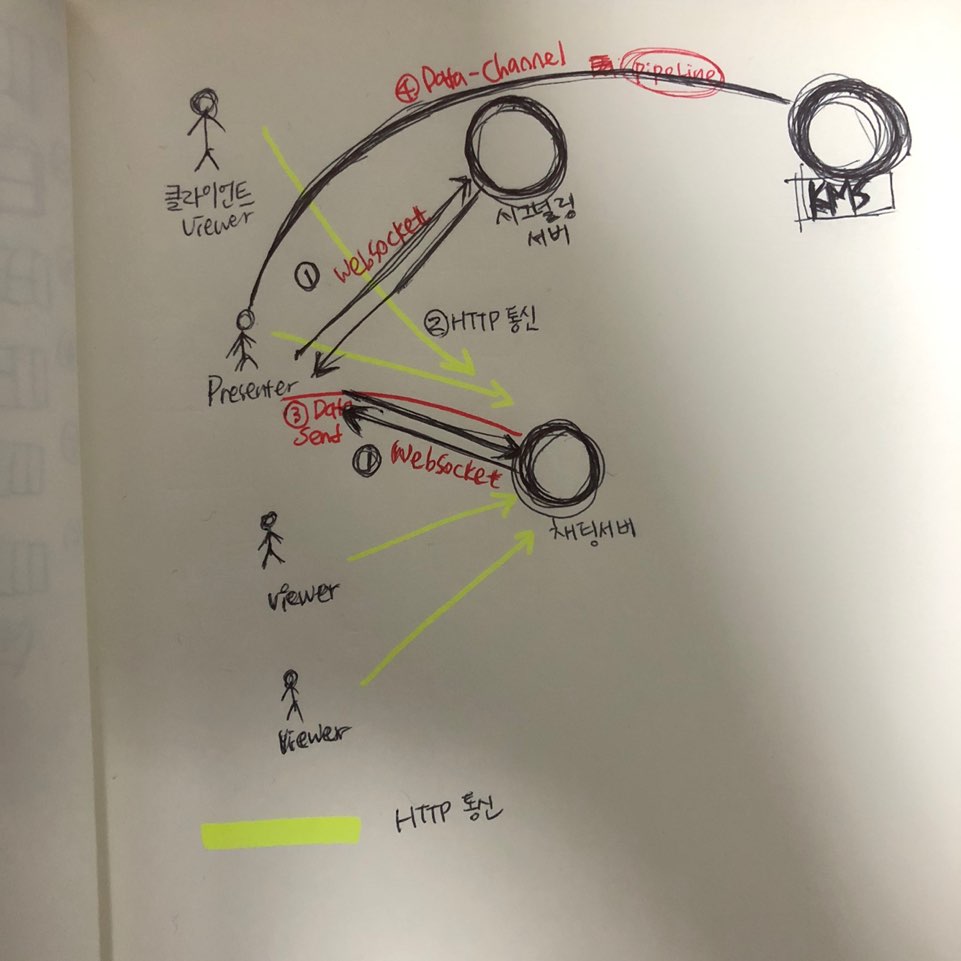 ④ Data-Channel
pipeline
클라이언트
Viewer
시그널링
서버
KMS
① Websocket
② HTTP 통신
Presenter
③ Data
Send
① Websocket
채팅서버
viewer
Viewer
HTTP 통신